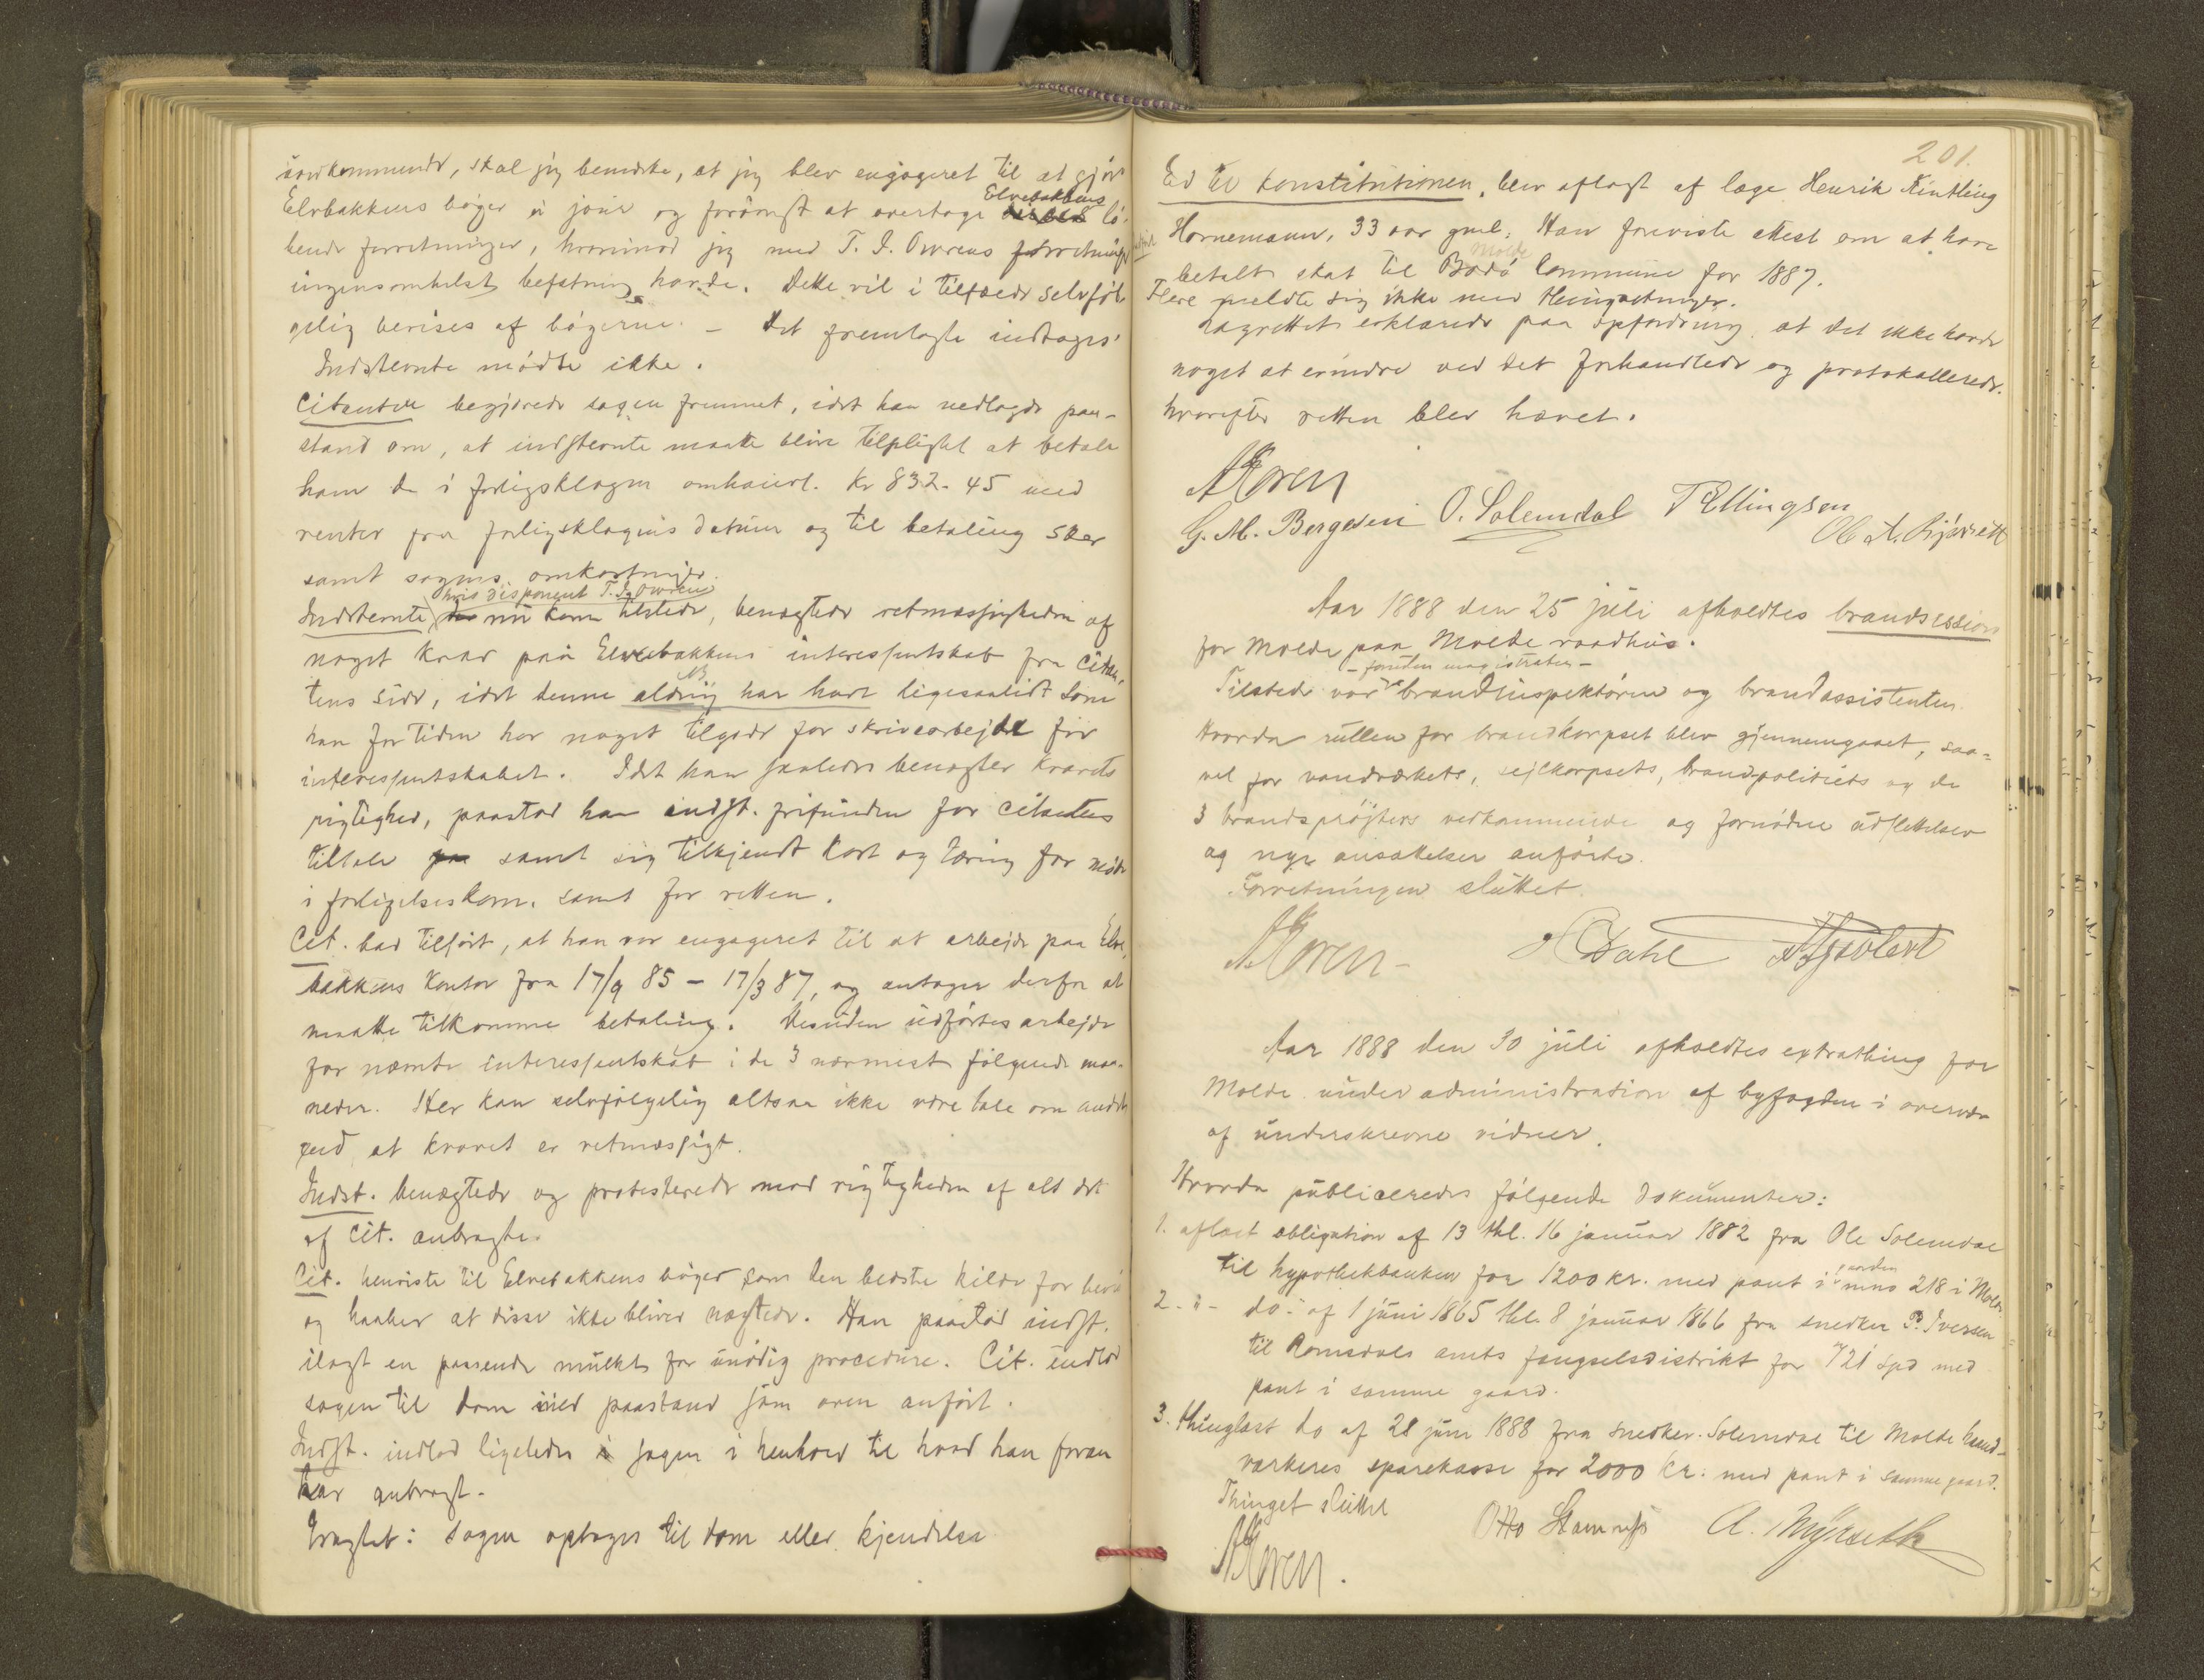 vedkommende, skal jeg bemærke, at jeg blev engageret til at gjøre
Elvebakkens bøger à jour og forøvrigt at overtage Elvebakkens lø-
bende forretninger, hvorimod jeg med T. J. Owrens forretninger
ingensomhelst befatning havde. Dette vil i tilfælde selvføl-
gelig bevises af bøgerne. – Det fremlagte indtages.
Indstevnte mødte ikke.
Citanten begjærede sagen fremmet, idet han nedlagde paa-
stand om, at indstevnte maatte blive tilpligtet at betale
ham de i forligsklagen omhandl. Kr 832.45 med
renter fra forligsklagens datum og til betaling sker
samt sagens omkostninger.
Indstevnte, hvis disponent T. J. Owren nu kom tilstede, benægtede retmæssigheden af
noget krav paa Elvebakkens interessentskab fra citan-
tens side, idet denne aldrig har havt ligesaalidt som
han for tiden har noget tilgode for skrivearbejde for
interessentskabet. Idet han saaledes benægter kravets
rigtighed, paastod han indst. frifunden for citantens
tiltale samt sig tilkjendt kost og tæring for møde
i forligelseskom. samt for retten.
Cit. bad tilført, at han var engageret til at arbejde paa Elve-
bakkens kontor fra 17/9 85 – 17/3 87, og antager derfor at
maatte tilkomme betaling. Desuden udførtes arbejde
for nævnte interessentskab i de 3 nærmest følgende maa-
neder. Her kan selvfølgelig altsaa ikke være tale om andet
end at kravet er retmæssigt.
Indst. benægtede og protesterede mod rigtigheden af alt det
af cit. anbragte.
Cit. henviste til Elvebakkens bøger som den bedste kilde for bevis
og haaber at disse ikke bliver nægtede. Han paastod indst.
ilagt en passende mulkt for unødig procedure. Cit. indlod
sagen til dom med paastand som oven anført.
Indst. indlod ligeledes sagen i henhold til hvad han foran
har anbragt.
Eragtet: Sagen optages til dom eller kjendelse
201.
Ed til konstitutionen blev aflagt af læge Henrik Kintling
Hornemann, 33 aar gml. Han foreviste attest om at have
betalt skat til Bodø Molde Commune for 1887.
Flere meldte sig ikke med thingsætninger.
Lagrettet erklærede paa opfordring, at det ikke havde
noget at erindre ved det forhandlede og protokollerede.
hvorefter retten blev hævet.
G. M. Bergesen O. Solemdal T Ellingsen
Aar 1888 den 25 juli afholdtes brandsession
for Molde paa Molde raadhus.
– foruden magistraten –
Tilstede var brandinspektøren og brandassistenten.
Hvorda rullen for brandkorpset blev gjennemgaaet, saa-
vel for vandværkets, sejlkorpsets, brandpolitiets og de
3 brandsprøjters vedkommende og fornødne udslettelser
og nye ansættelser anførte.
Forretningen sluttet.
Dahl
Aar 1888 den 30 juli afholdtes extrathing for
Molde under administration af byfogden i overvær
af underskrevne vidner.
Hvorda publiceredes følgende dokumenter:
1. aflæst obligation af 13 thl. 16 januar 1882 fra Ole Solemdal
til hypothekbanken for 1200 kr. med pant i gaarden mno 218 i Molde
2. – do – af 1 juni 1865 thl. 8 januar 1866 fra snedker P. Iversen
til Romsdals amts fængselsdistrikt for 721 spd med
pant i samme gaard.
3. thinglæst do af 28 juni 1888 fra snedker Solemdal til Molde haand-
værkeres sparekasse for 2000 kr. med pant i samme gaard.
Thinget sluttet
Otto Hamnæs A. Myrseth